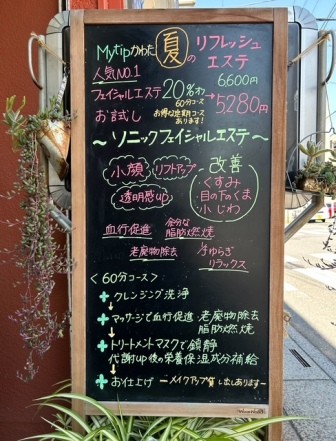 Mytipかわた 夏の リフレッシュ
エステ
人気NO.1
フェイシャルエステ 20%オフ 6600円
60分コース → 5,280円
お試し お得な定期コース
あります!
～ソニックフェイシャルエステ～
小顔 リフトアップ
透明感up
改善
・くすみ
・目の下のくま
・小じわ
血行促進 余分な
脂肪燃焼
老廃物除去 浮ゆらぎ
リラックス
<60分コース>
+クレンジング洗浄
↓
+マッサージで血行促進 老廃物除去
脂肪燃焼
↓
+トリートメントマスクで鎮静
代謝up後の栄養保湿成分補給
↓
+お仕上げ ーメイクアップ質し出しありますー